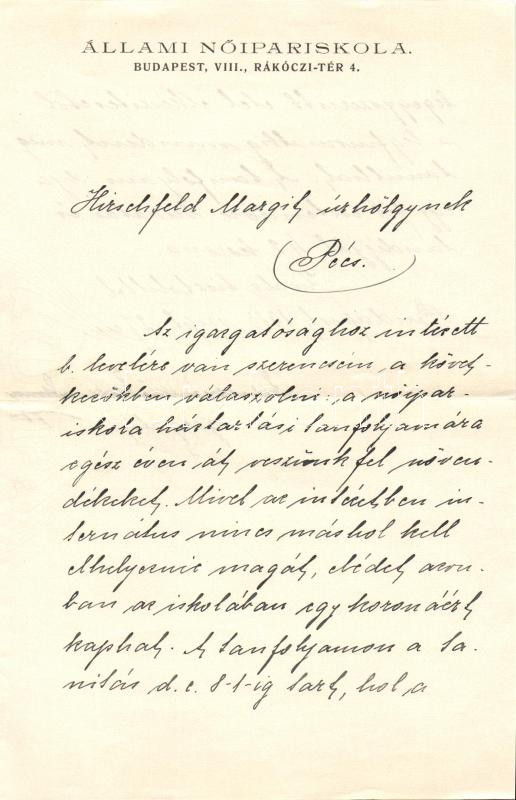 ÁLLAMI NŐIPARISKOLA.
BUDAPEST, VIII., RÁKÓCZI-TÉR 4.
Hirschfeld Margit úrhölgynek
Pécs.
Az igazgatósághoz intézett
b. levelére van szerencsém a követ-
kezőkben válaszolni: a nőipar-
iskola háztartási tanfolyamára
egész éven át veszünk fel növen-
dékeket. Mivel az intézetben in-
ternátus nincs máshol kell
elhelyeznie magát, ebédet azon-
ban az iskolában egy koronáért
kaphat. A tanfolyamon a ta-
nítás d. e. 8-1-ig tart, hol a